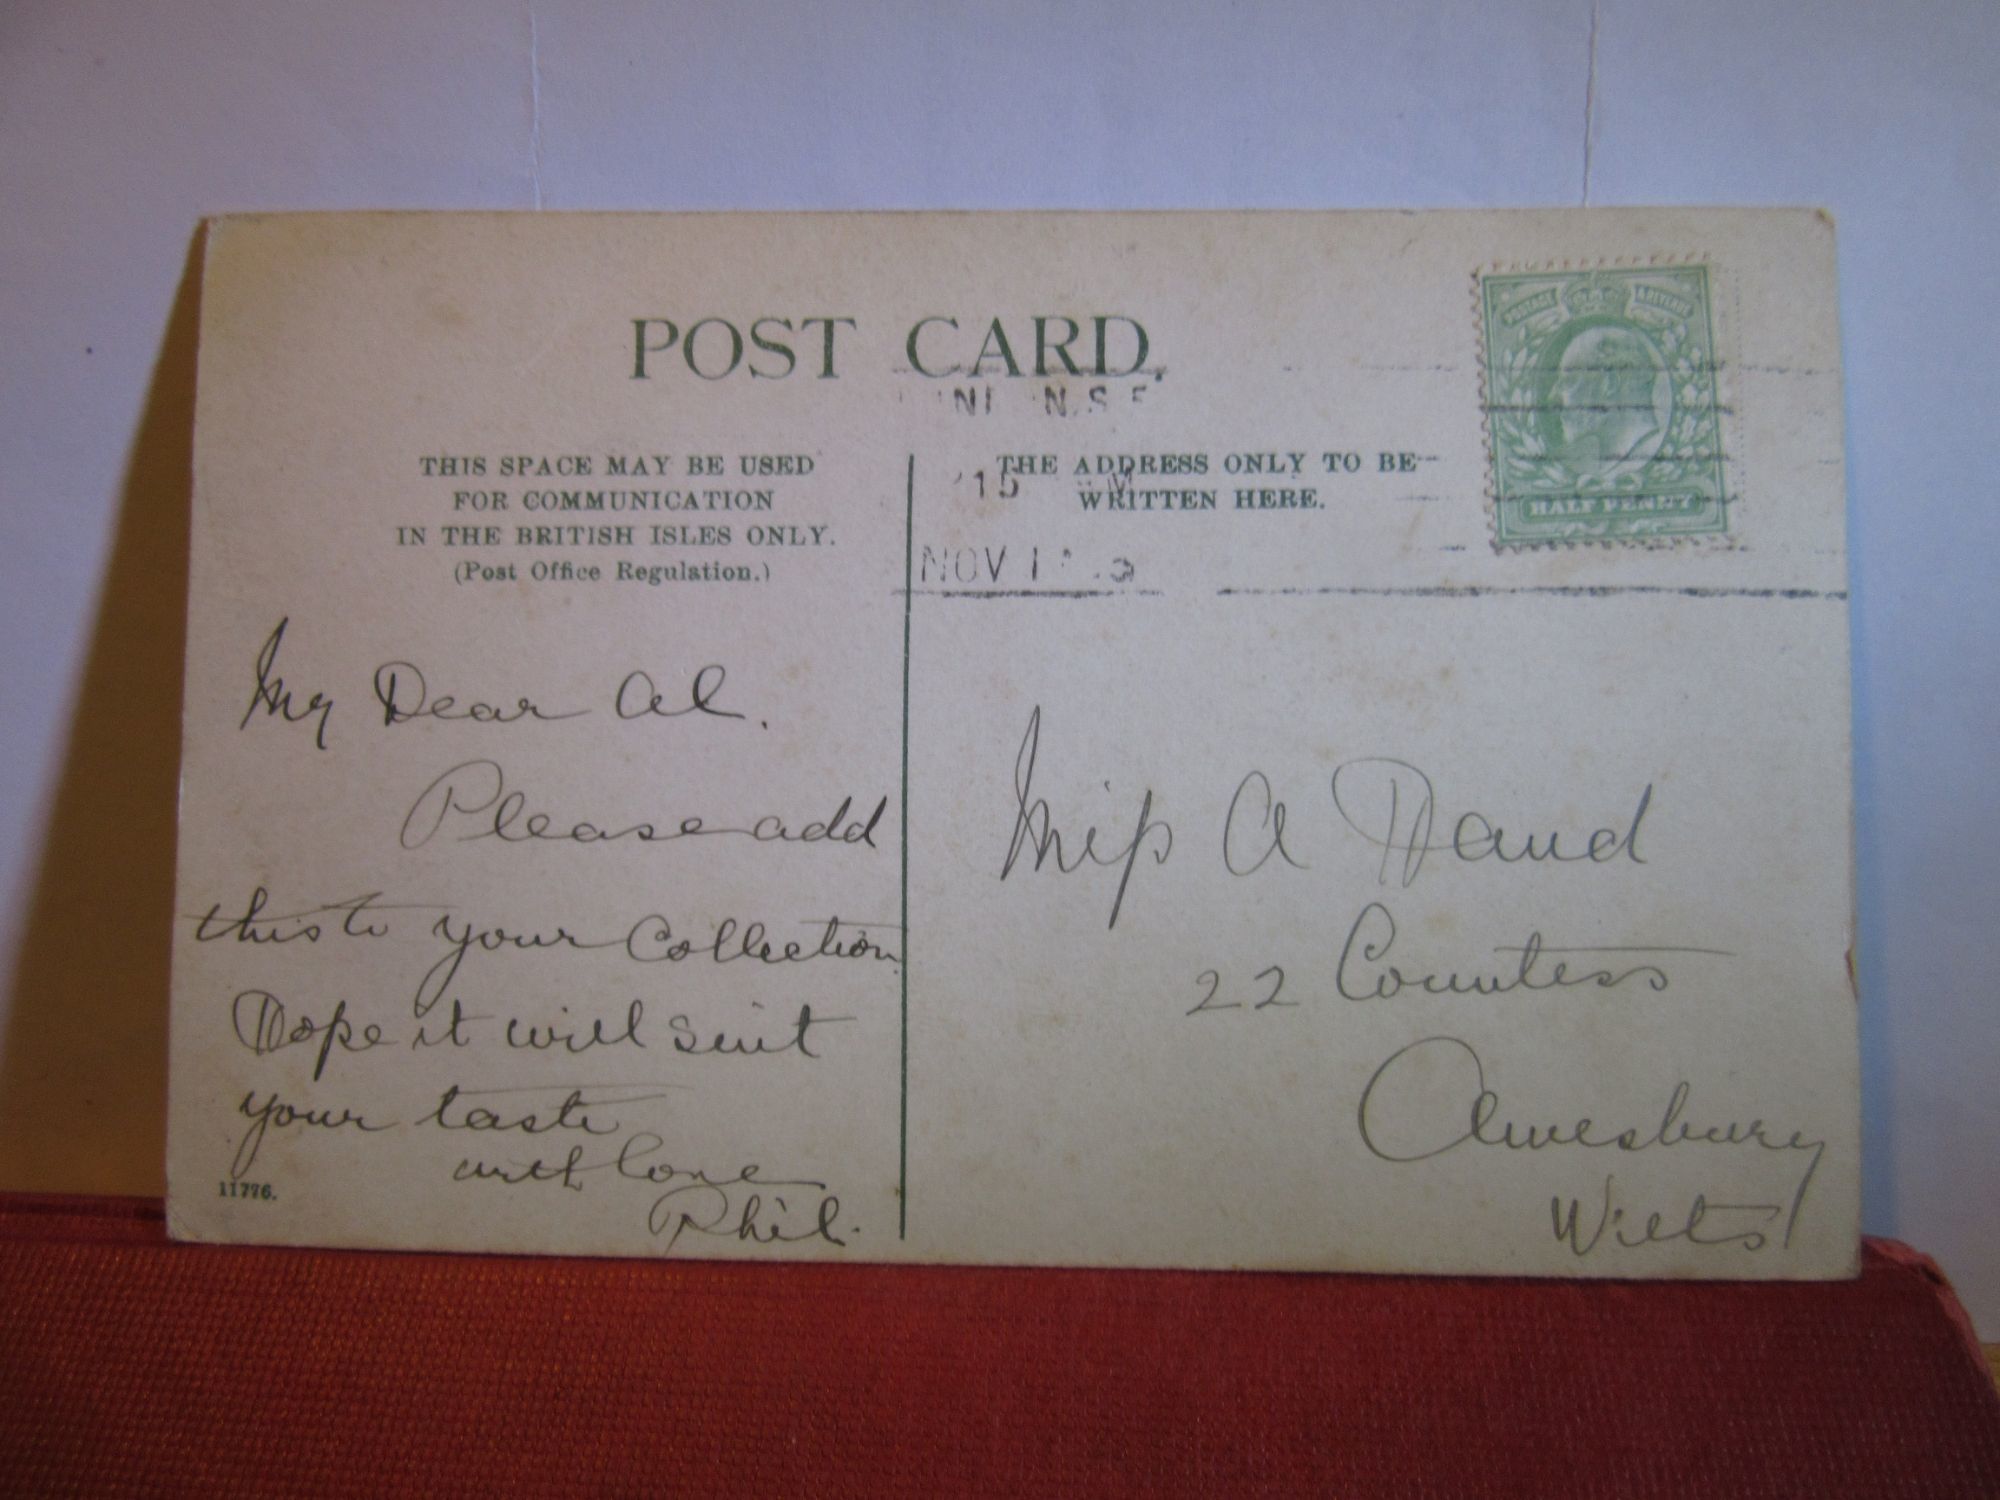 POST CARD.
THIS SPACE MAY BE USED
FOR COMMUNICATION
IN THE BRITISH ISLES ONLY.
(Post Office Regulation.)
THE ADDRESS ONLY TO BE
WRITTEN HERE.
POSTAGE & REVENUE
HALF PENNY
N.S.E
15
NOV 1
My Dear Al.
Please add
this to your Collection
Hope it will suit
your taste
with love
Phil.
11776.
Miss A
22 Countess
Amesbury
Wilts